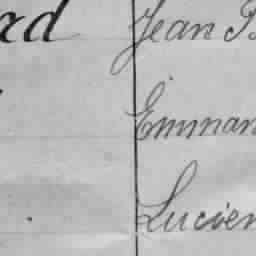 rd Jean B
Emman
Lucien